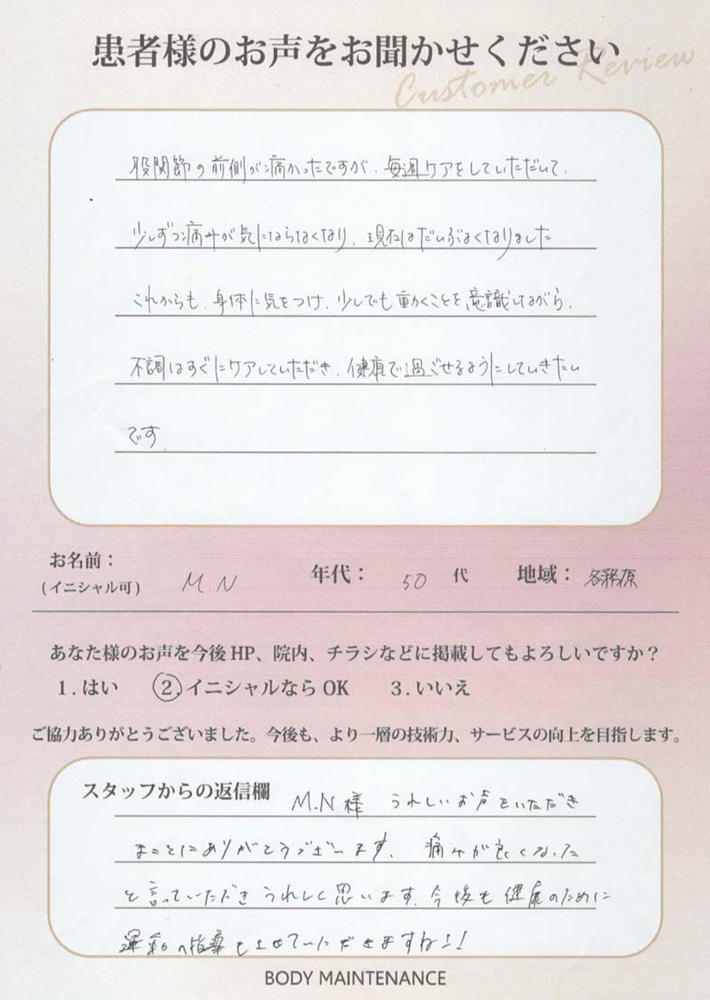 患者様のお声をお聞かせください
Customer Review
股関節の前側が痛かったですが、毎週ケアをしていただいて、
少しずつ痛みが気にならなくなり、現在はだいぶよくなりました
これからも、身体に気をつけ、少しでも動くことを意識しながら、
不調はすぐにケアしていただき、健康で過ごせるようにしていきたい
です。
お名前：
(イニシャル可) M.N 年代： 50 代 地域： 各務原
あなた様のお声を今後 HP、院内、チラシなどに掲載してもよろしいですか？
1. はい ②イニシャルなら OK 3. いいえ
ご協力ありがとうございました。今後も、より一層の技術力、サービスの向上を目指します。
スタッフからの返信欄 M.N様 うれしいお声をいただき
まことにありがとうございます。痛みが良くなった
と言っていただきうれしく思います。今後も健康のために
運動の指導もさせていただきますね!!
BODY MAINTENANCE